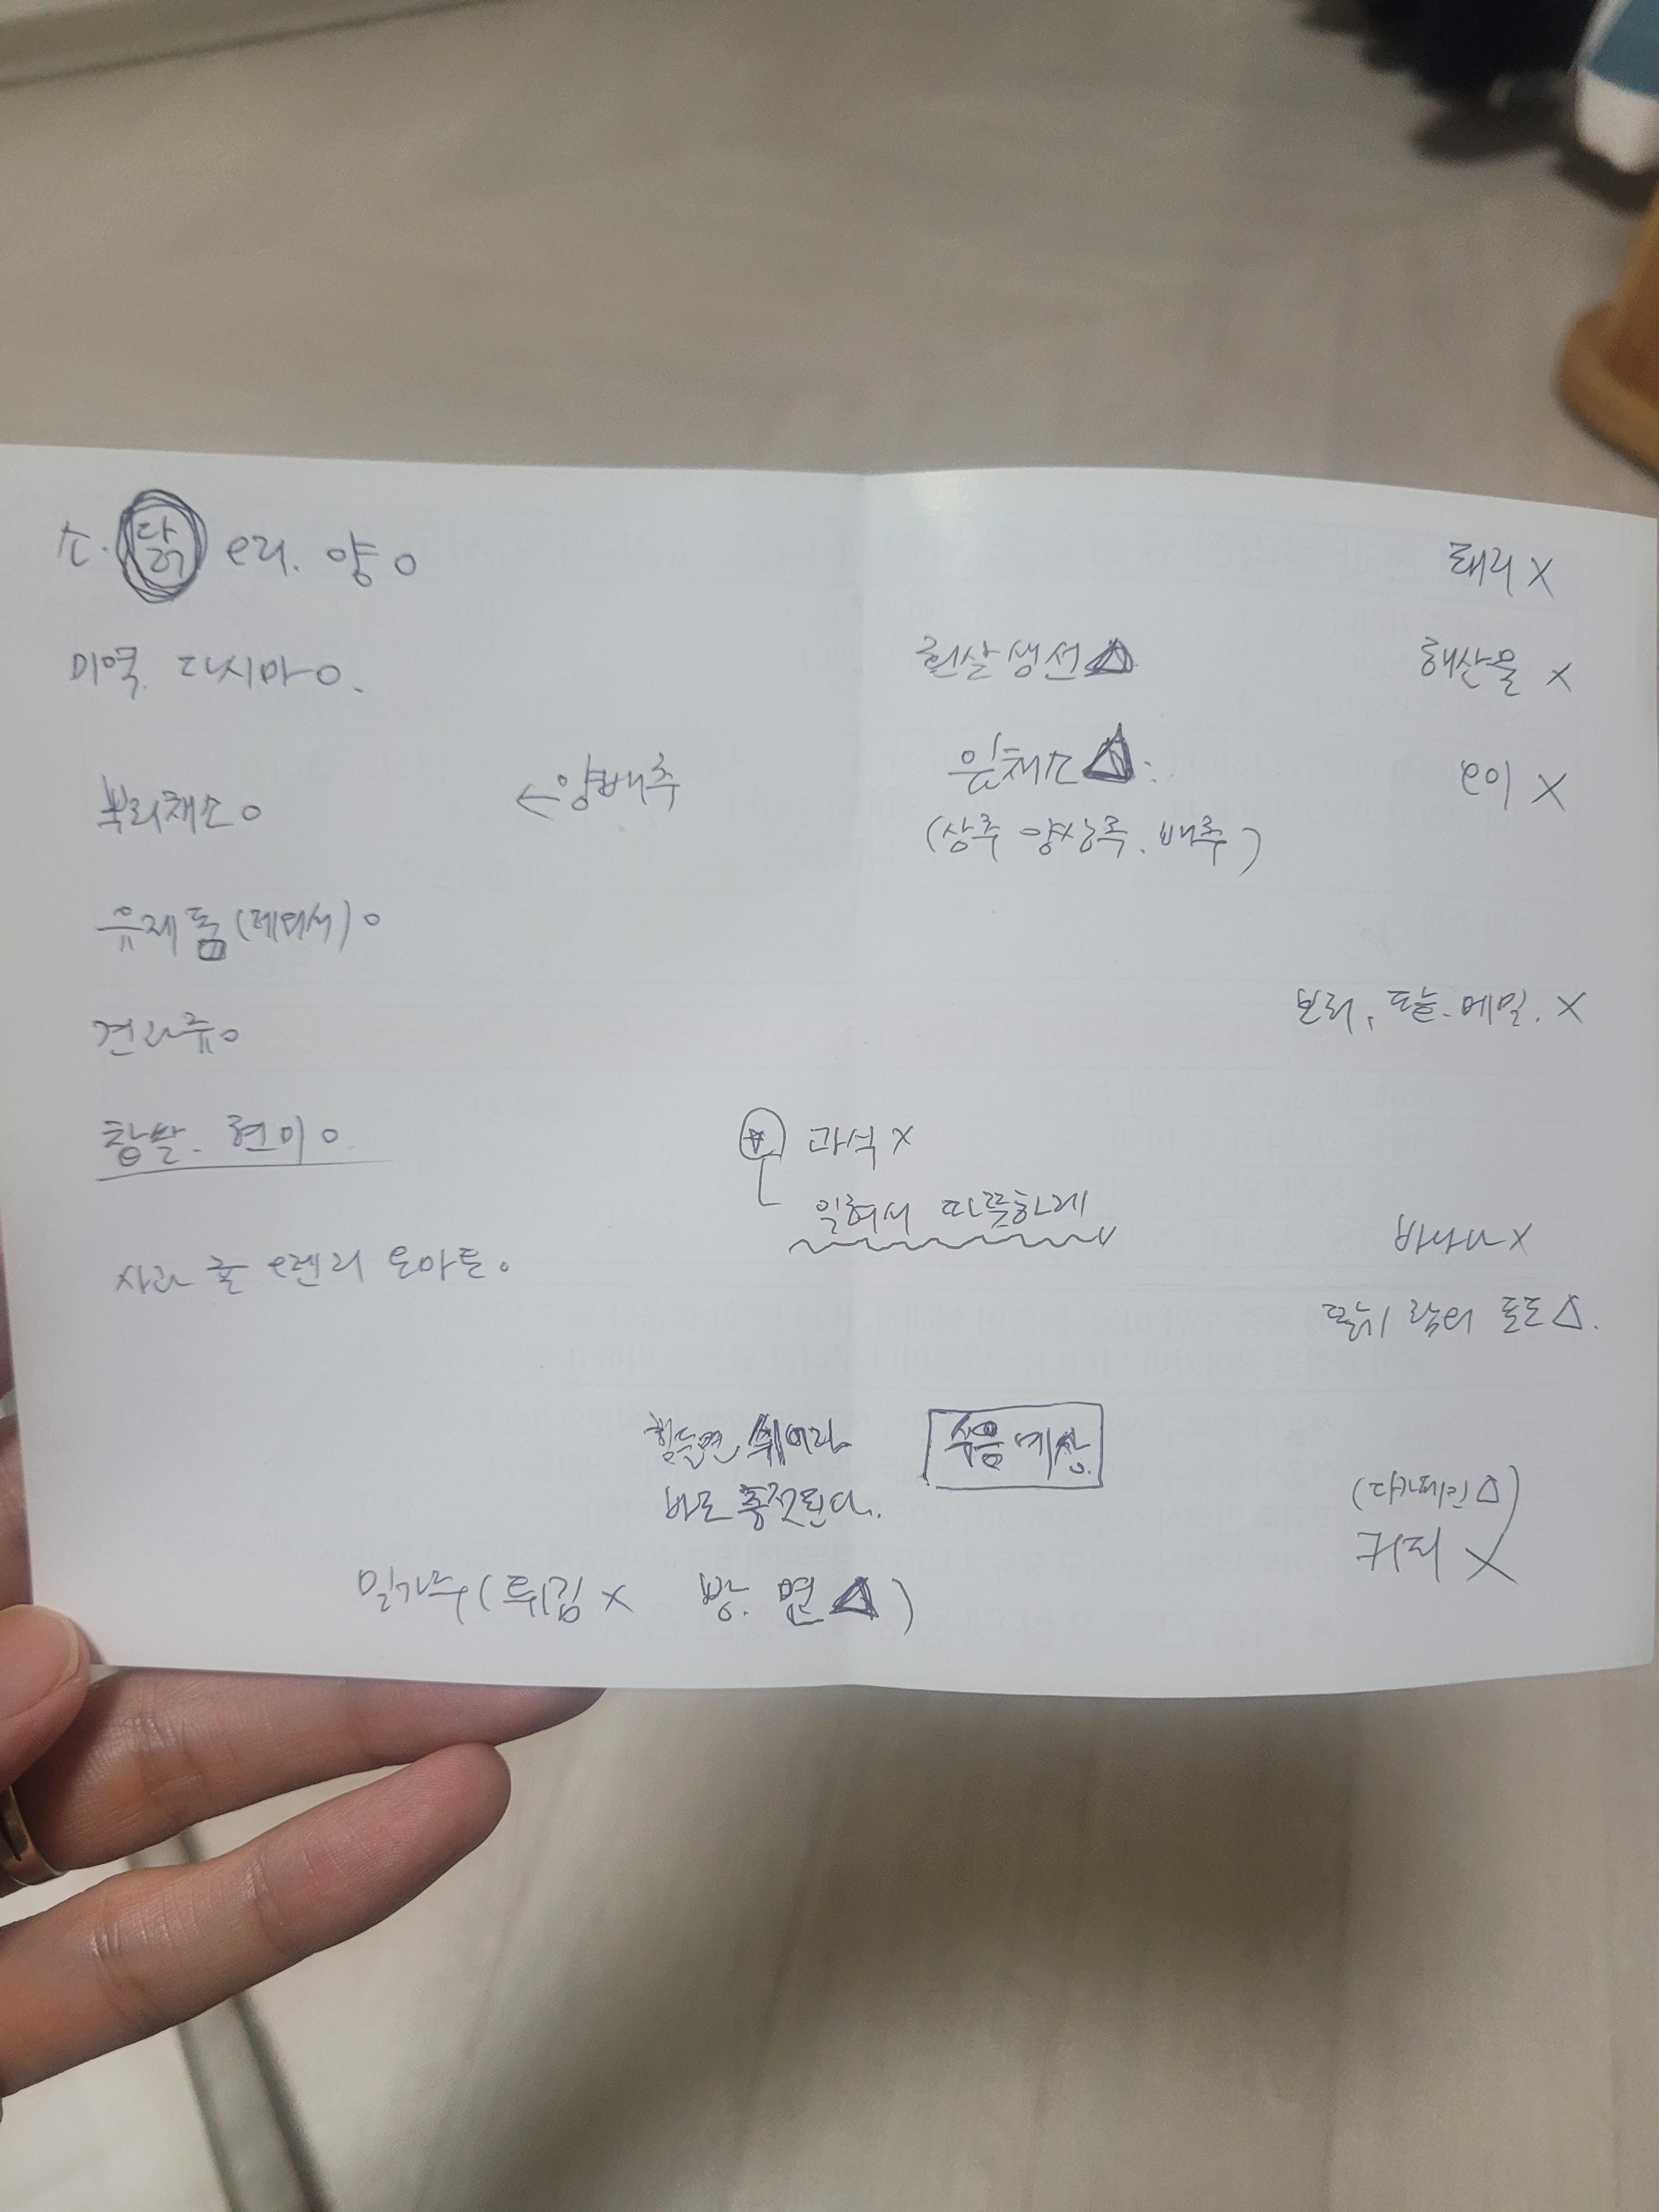 소. 닭 오리. 양 O
돼지 X
미역. 다시마 O.
흰살생선 △
해산물 X
뿌리채소 O
← 양배추
잎채소 △:
(상추 양상추. 배추)
오이 X
유제품 (페이셔) O
견과류 O
보리, 팥. 메밀. X
찹쌀. 현미 O.
과식 X
익혀서 따뜻하게
사과 귤 오렌지 토마토 O
바나나 X
딸기 참외 포도 △.
힘들면 쉬어라
바로 충전된다.
죽음 예상.
(디카페인 △)
커피 X
밀가루 (튀김 X 빵. 면 △)